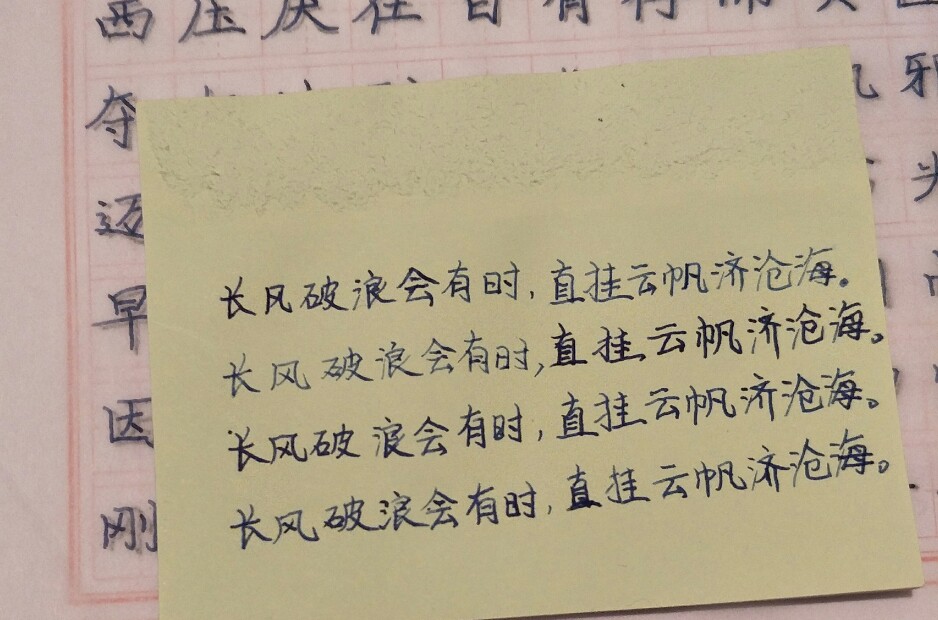 西压灰在
夺
迈
早
因
刚
邪
长风破浪会有时,直挂云帆济沧海。
长风破浪会有时,直挂云帆济沧海。
长风破浪会有时,直挂云帆济沧海。
长风破浪会有时,直挂云帆济沧海。